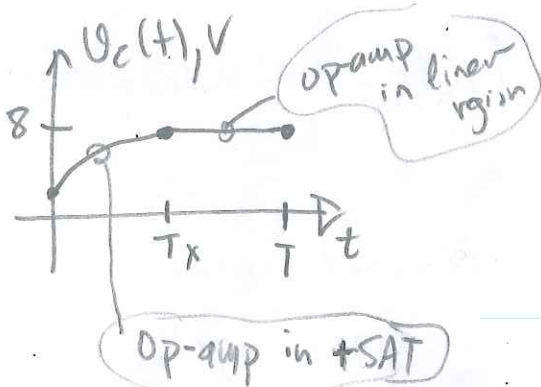 υc(t), V
op-amp
in liner
rgion
8
Tx
T
t
Op-amp in +SAT